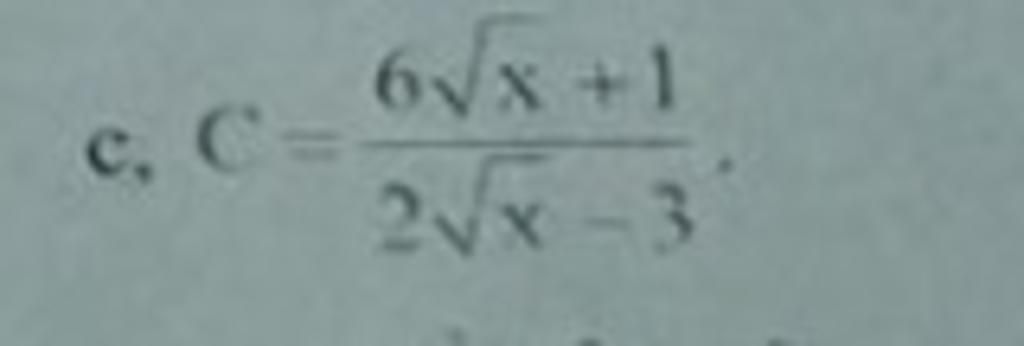 c. C = \frac{6\sqrt{x} + 1}{2\sqrt{x} - 3}.